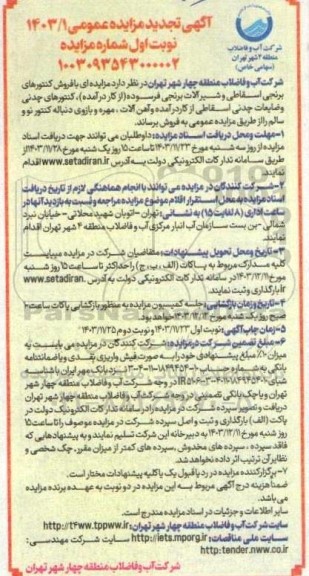 آگهی تجدید مزایده عمومی ۱۴۰۳/۱
نوبت اول شماره مزایده
۱۰۰۳۰۹۳۵۴۳۰۰۰۰۰۲
شرکت آب و فاضلاب
منطقه ۴ شهر تهران
(سهامی خاص)
شرکت آب و فاضلاب منطقه چهار شهر تهران در نظر دارد مزایده ای با فروش کنتورهای
برنجی اسقاطی و شیرآلات برنجی فرسوده (از کار درآمده)، کنتورهای چدنی
و ضایعات چدنی اسقاطی از کار درآمده و آهن آلات، مهره و بازوی دنباله کنتور نو و
سالم را از طریق مزایده عمومی به فروش برساند.
۱-مهلت و محل دریافت اسناد مزایده: داوطلبان می توانند جهت دریافت اسناد
مزایده از روز سه شنبه مورخ ۱۴۰۳/۱۱/۲۳ تا ساعت ۱۵ روز یک شنبه مورخ ۱۴۰۳/۱۱/۲۸ از
طریق سامانه تدارکات الکترونیکی دولت به آدرس www.setadiran.ir اقدام
نمایند.
۲-شرکت کنندگان در مزایده می توانند با انجام هماهنگی لازم از تاریخ دریافت
اسناد مزایده به محل استقرار اقلام موضوع مزایده مراجعه و نسبت به بازدید آنها در
ساعت اداری (۸ لغایت ۱۵) به نشانی: تهران-اتوبان شهید محلاتی-خیابان نبرد
شمالی-بن بست سازمان آب انبار مرکزی آب و فاضلاب منطقه ۴ شهر تهران اقدام
نمایند.
۳-تاریخ و محل تحویل پیشنهادات: متقاضیان شرکت در مزایده میبایست
کلیه مدارک مربوط به پاکات (الف، ب، ج) را حداکثر تا ساعت ۱۵ روز شنبه
مورخ ۱۴۰۳/۱۲/۱۱ در سامانه تدارکات الکترونیکی دولت به آدرس www.setadiran.
ir بارگذاری و ثبت نمایند.
۴-تاریخ و زمان بازگشایی: جلسه کمیسیون مزایده به منظور بازگشایی پاکات ساعت ۹
صبح روز یک شنبه مورخ ۱۴۰۳/۱۲/۱۲ خواهد بود.
۵-زمان چاپ آگهی: نوبت اول ۱۴۰۳/۱۱/۲۳ و نوبت دوم ۱۴۰۳/۱۱/۲۵
۶-مبلغ تضمین شرکت در مزایده: شرکت کنندگان در مزایده می بایست به
میزان ۱۰٪ مبلغ پیشنهادی خود را به صورت فیش واریزی نقدی و یا ضمانتنامه
بانکی به شماره حساب نزد بانک مهر ایران با شناسه
شبای در وجه شرکت آب و فاضلاب منطقه چهار شهر
تهران و یا چک بانکی تضمینی در وجه شرکت آب و فاضلاب منطقه چهار شهر تهران
دریافت و تصویر سپرده شرکت در مزایده را در سامانه تدارکات الکترونیک دولت در
پاکت (الف) بارگذاری و ثبت و اصل سپرده شرکت در مزایده موصوف را تا ساعت ۱۵
روز شنبه مورخ ۱۴۰۳/۱۲/۱۱ به دبیرخانه این شرکت تسلیم نمایند و به پیشنهادهایی که
فاقد سپرده، سپرده های مخدوش، سپرده های کمتر از میزان مقرر، چک شخصی و
نظایر آن ترتیب اثر داده نخواهد شد.
۷-برگزارکننده مزایده در رد یا قبول یک یا کلیه پیشنهادات مختار است.
ضمنا هزینه درج آگهی مربوط به این مزایده در دو نوبت به عهده برنده مزایده
می باشد.
سایر اطلاعات و جزئیات در اسناد مزایده مندرج است.
سایت شرکت آب و فاضلاب منطقه چهار شهر تهران: http://t4ww.tppww.ir
سایت ملی مناقصات: http://iets.mporg.ir سایت شرکت مهندسی:
http:tender.nww.co.ir
شرکت آب و فاضلاب منطقه چهار شهر تهران